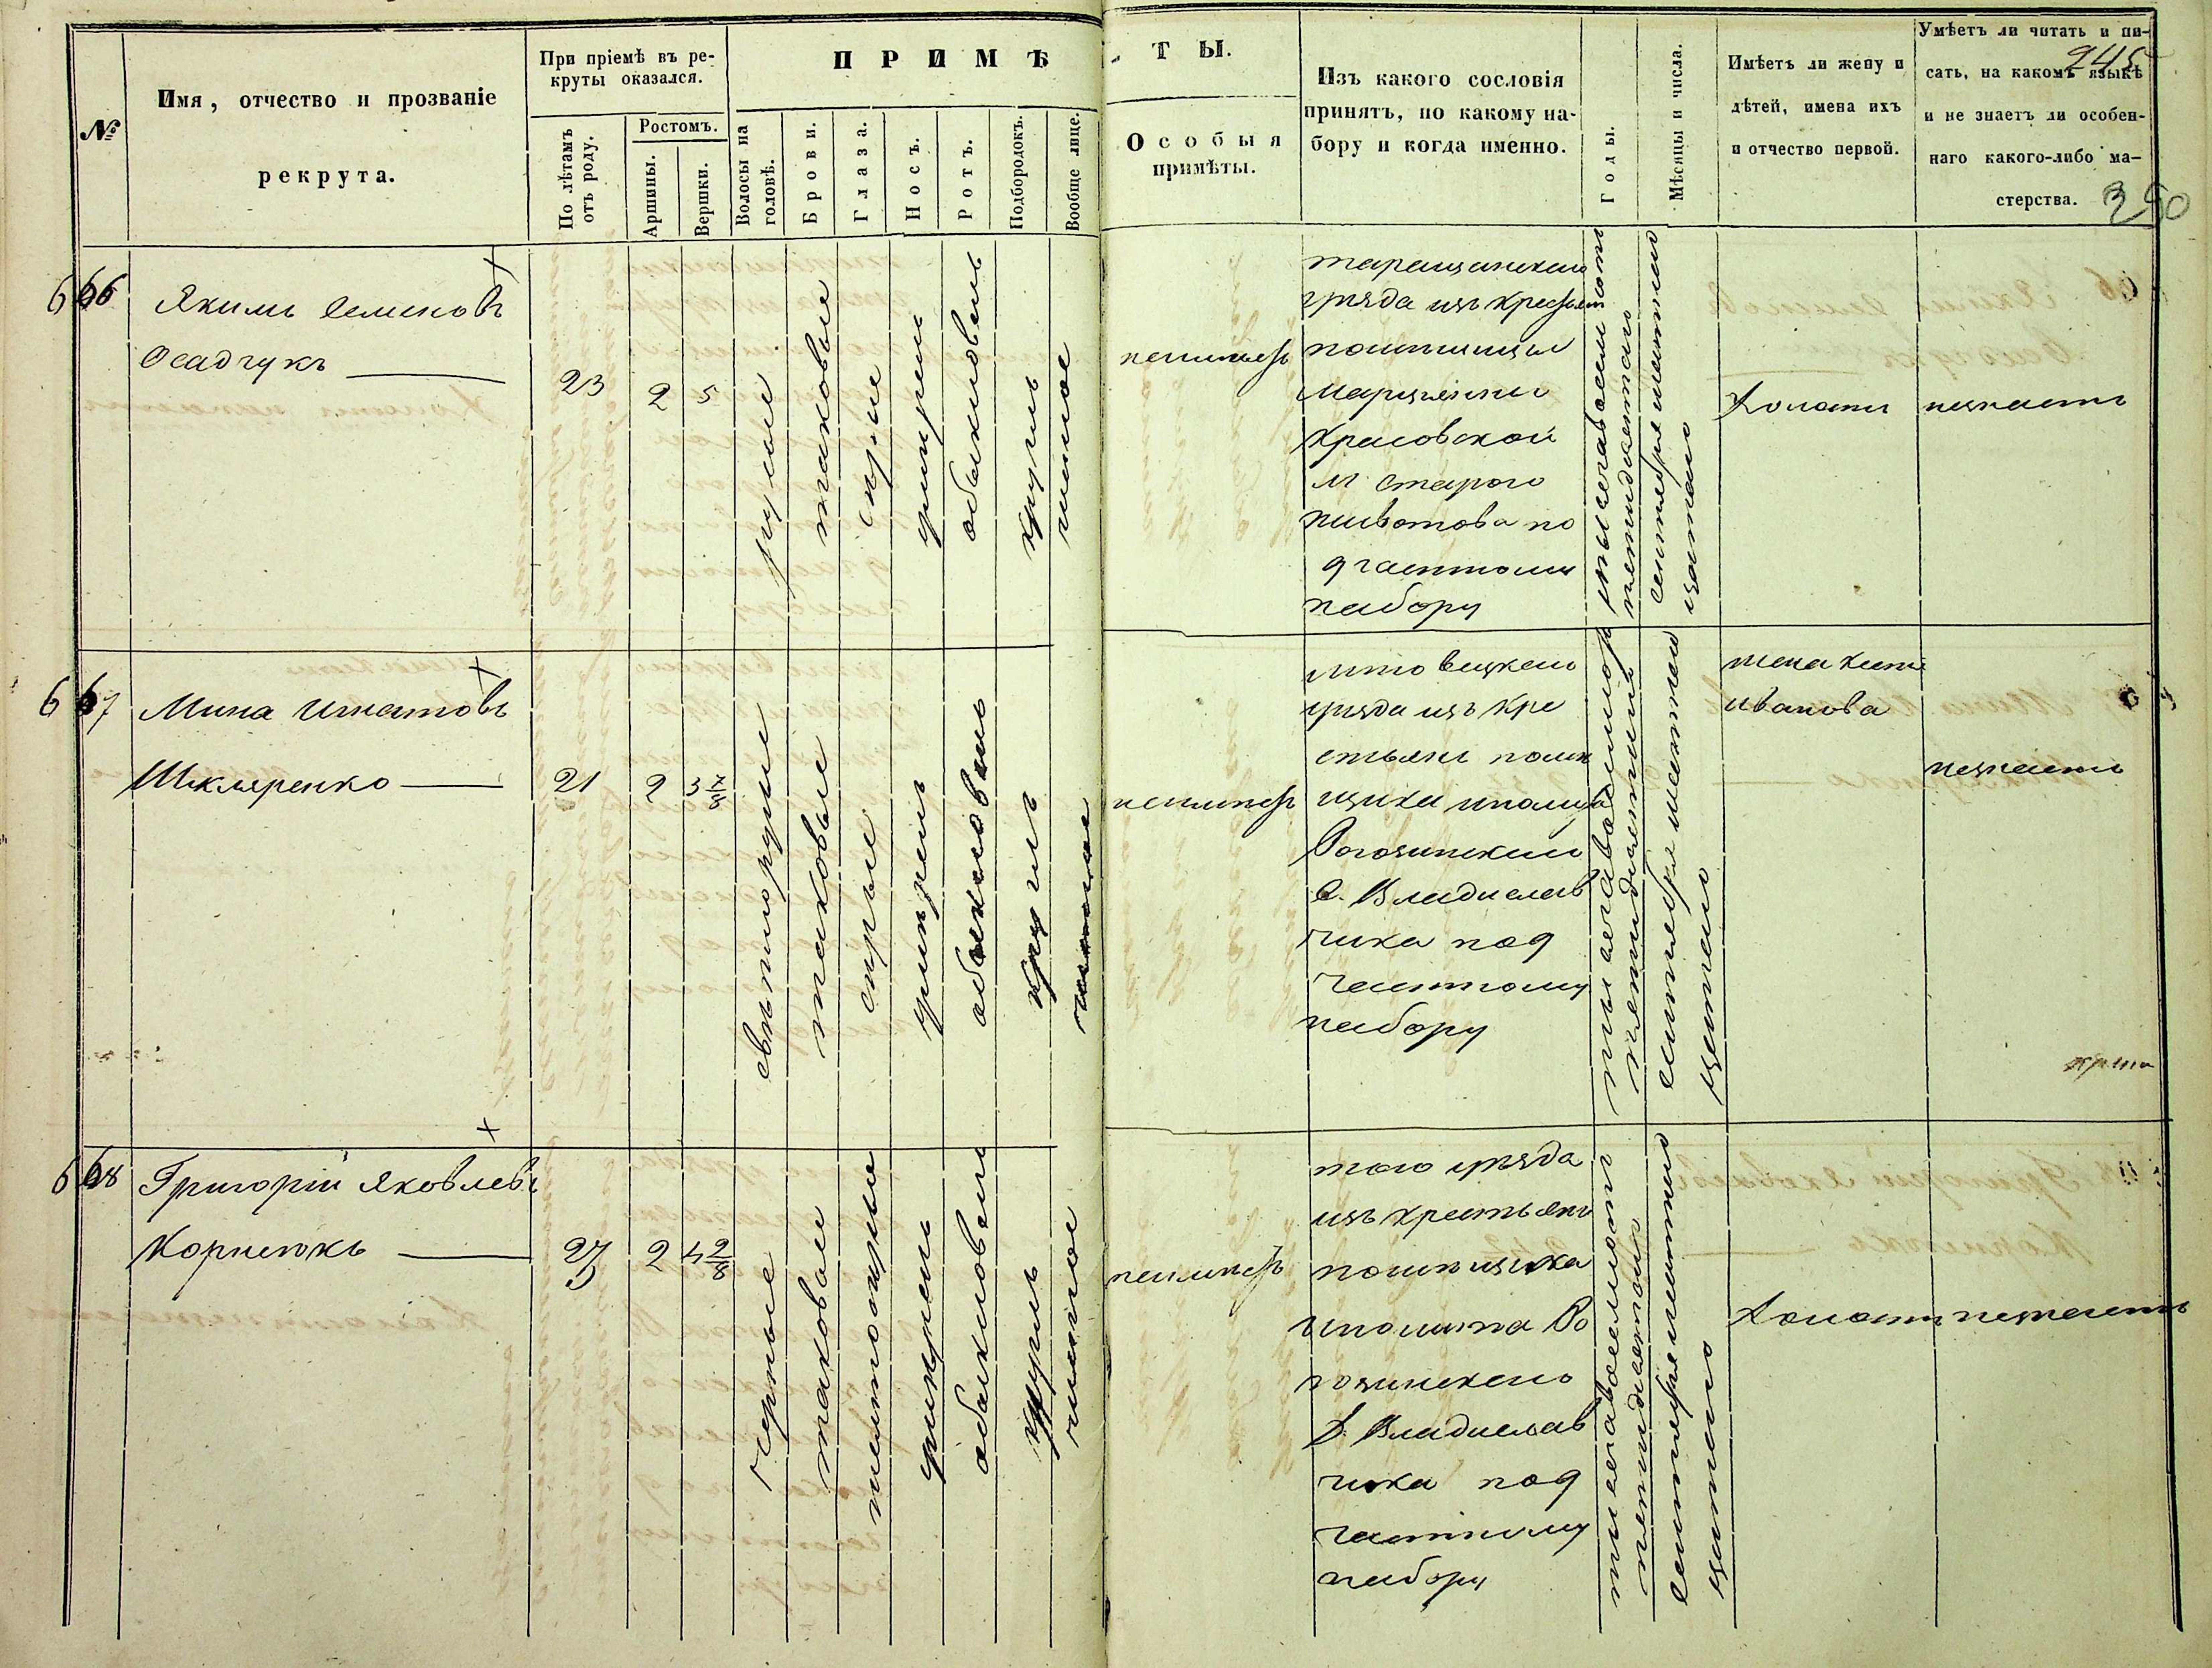 №
Имя, отчество и прозваніе
рекрута.
При пріемѣ въ ре-
круты оказался.
По лѣтамъ
отъ роду.
Ростомъ.
Аршины.
Вершки.
ПРИМѢ
Волосы на
головѣ.
Брови.
Глаза.
Носъ.
Ротъ.
Подбородокъ.
Вообще лице.
ТЫ.
Особыя
примѣты.
Изъ какого сословія
принятъ, по какому на-
бору и когда именно.
Годы.
Мѣсяцы и числа.
Имѣетъ ли жену и
дѣтей, имена ихъ
и отчество первой.
Умѣетъ ли читать и пи-
сать, на какомъ языкѣ
и не знаетъ ли особен-
наго какого-либо ма-
стерства.
245
350
666
Якимъ Семеновъ
Осадчукъ
23
2
5
русые
таковые
серые
умерен
обыкновен
кругл
чистое
неимеет
таращанскаго
уезда изъ крестьян
помещицы
Марцелины
Красовской
м Старого
Животова по
д частному
набору
тысяча восемсот
пятидесятого
сентября
Холост
незнает
667
Мина Игнатовъ
Шкляренко
21
2
3 7/8
светлорусые
таковые
серые
умерен
обыкновен
кругл
чистое
неимеет
уезда изъ кре
стьянъ поме
щика
С. Владислав
чика под
частному
набору
тысяча восемсот
пятидесятого
сентября
жена
Иванова
незнает
668
Григорій Яковлевъ
Корнейокъ
2
4 2/8
черные
таковые
умерен
обыкновен
кругл
чистое
неимеет
того уезда
изъ крестьянъ
помещика
Иполита Ро
гозинскаго
С. Владислав
чика под
частному
набору
тысяча восемсот
пятидесятого
сентября
Холост
незнает